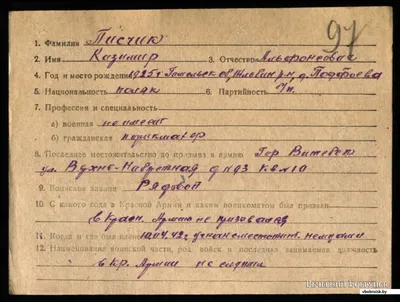 97
1. Фамилия Писчик
2. Имя Казимир 3. Отчество Альфонсович
4. Год и место рождения 1925 г. Гомельск обл, Жлобин р-н, д.
5. Национальность поляк 6. Партийность б/п.
7. Профессия и специальность
а) военная не имеет
б) гражданская парикмахер
8. Последнее местожительство до призыва в армию Гор Витебск
ул. д №3 кв №10
9. Воинское звание Рядовой
10. С какого года в Красной Армии и каким военкоматом был призван
в Красн. Армию не призывался
11. Когда и где 10.04.42 г. немцами
12. Наименование воинской части, род войск и последняя занимаемая должность
в Кр. Армии не служил
vitebsk.by